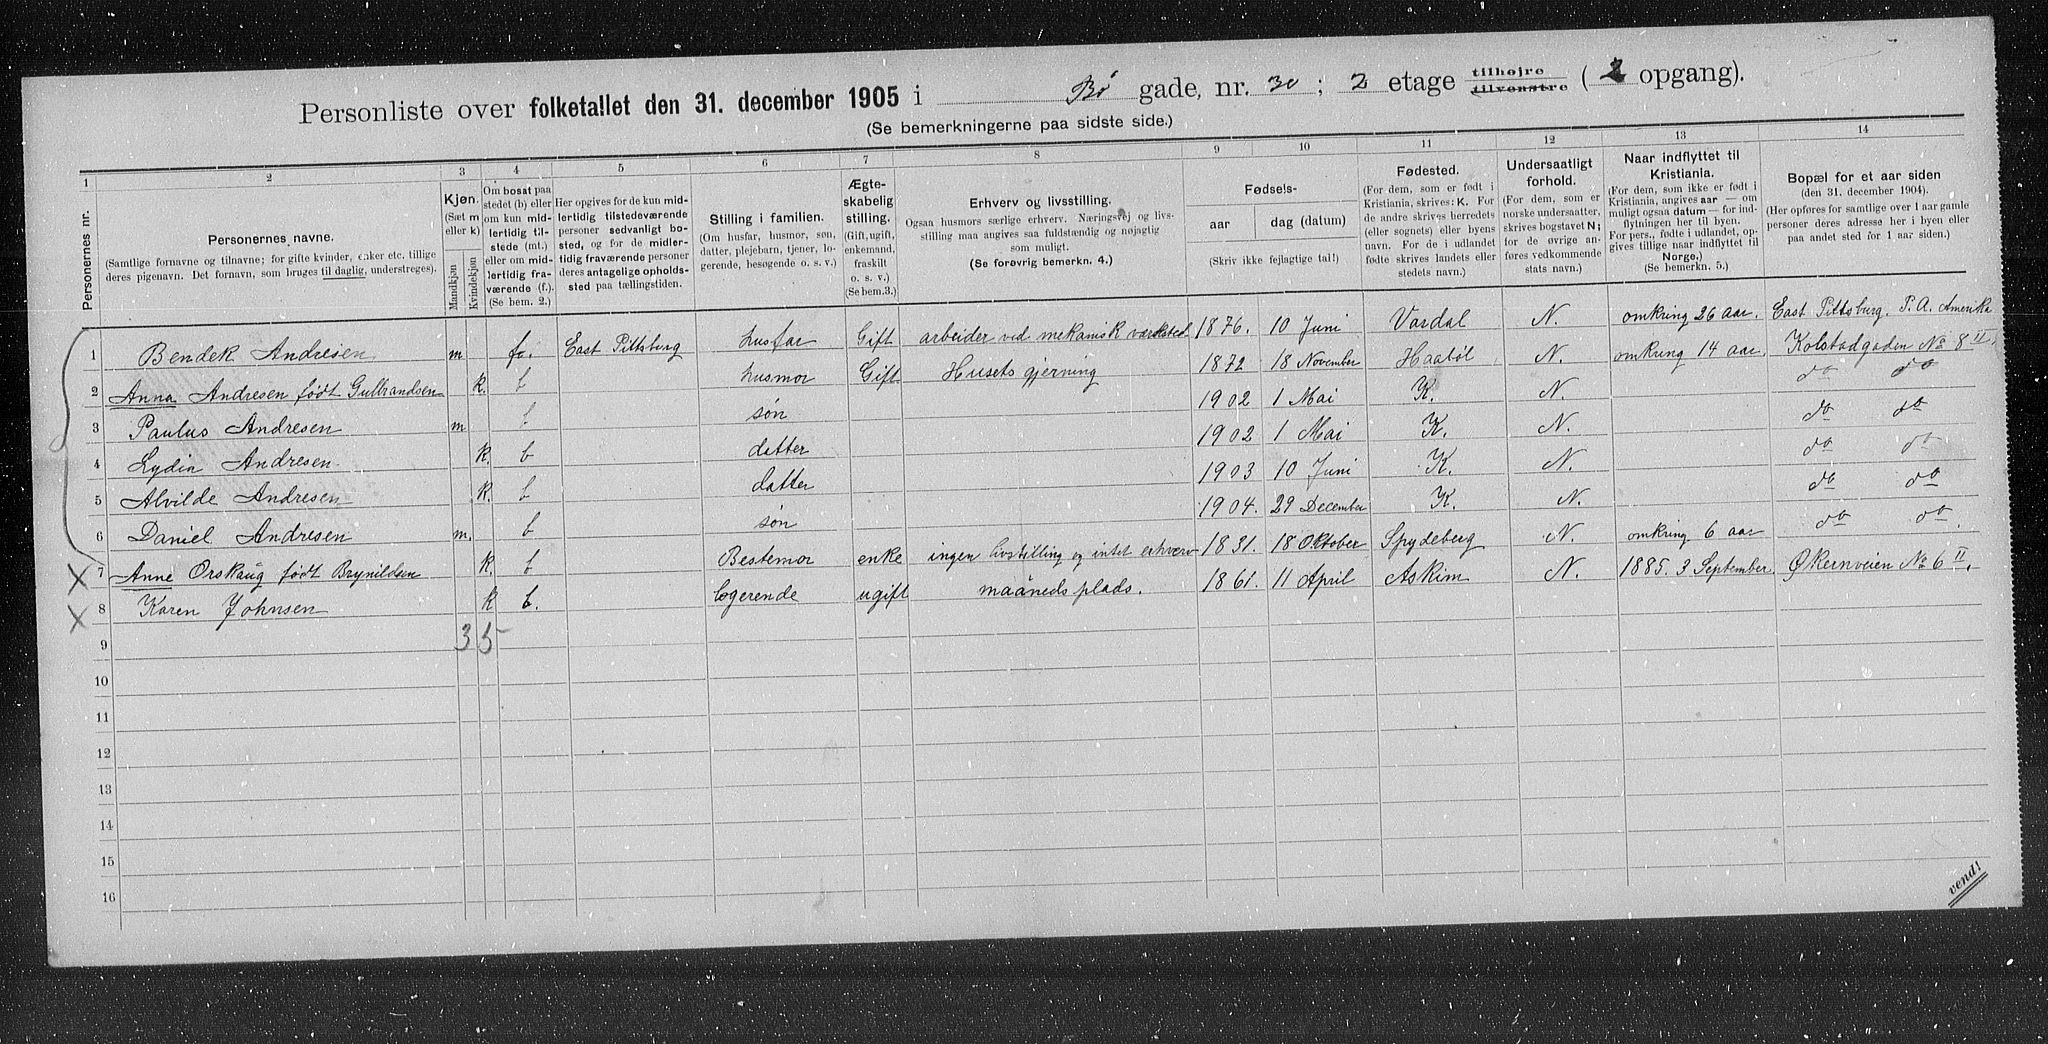 Personliste over folketallet den 31. december 1905 i Bø gade, nr. 30; 2 etage tilhøjre tilvenstre (2 opgang).
(Se bemerkningerne paa sidste side.)
1 2 3 4 5 6 7 8 9 10 11 12 13 14
Personernes nr.
Personernes navne.
(Samtlige fornavne og tilnavne; for gifte kvinder, enker etc. tillige
deres pigenavn. Det fornavn, som bruges til daglig, understreges).
Kjøn.
(Sæt m
eller k)
Mandkjøn
Kvindekjøn
Om bosat paa
stedet (b) eller
om kun mid-
lertidig til-
stede (mt.)
eller om mid-
lertidig fra-
værende (f.).
(Se bem. 2.)
Her opgives for de kun mid-
lertidig tilstedeværende
personer sedvanligt bo-
sted, og for de midler-
tidig fraværende personer
deres antagelige opholds-
sted paa tællingstiden.
Stilling i familien.
(Om husfar, husmor, søn,
datter, plejebarn, tjener, lo-
gerende, besøgende o. s. v.)
Ægte-
skabelig
stilling.
(Gift, ugift,
enkemand,
fraskilt
o. s. v.)
(Se bem.3.)
Erhverv og livsstilling.
Ogsaa husmors særlige erhverv. Næringsvej og livs-
stilling maa angives saa fuldstændig og nøjagtig
som muligt.
(Se forøvrig bemerkn. 4.)
Fødsels-
aar dag (datum)
(Skriv ikke fejlagtige tal!)
Fødested.
(For dem, som er født i
Kristiania, skrives: K. For
de andre skrives herredets
(eller sognets) eller byens
navn. For de i udlandet
fødte skrives landets eller
stedets navn.)
Undersaatligt
forhold.
(For dem, som er
norske undersaatter,
skrives bogstavet N;
for de øvrige an-
føres vedkommende
stats navn.)
Naar indflyttet til
Kristiania.
(For dem, som ikke er født i
Kristiania, angives aar — om
muligt ogsaa datum — for ind-
flytningen her til byen.
For pers., fødte i udlandet, op-
gives tillige naar indflyttet til
Norge.)
(Se bemerkn. 5.)
Bopæl for et aar siden
(den 31. december 1904).
(Her opføres for samtlige over 1 aar gamle
personer deres adresse her i byen eller
paa andet sted for 1 aar siden.)
1 Bendek Andresen m f. East Pittsburg husfar Gift arbeider ved mekanisk værksted 1876. 10 Juni Vardal N. omkring 26 aar. East Pittsburg. P.A. Amerika
2 Anna Andresen født Gulbrandsen k. b husmor Gift Husets gjerning 1872 18 November Haabøl N. omkring 14 aar. Kolstadgaden No 8 II.
3 Paulus Andresen m b søn 1902 1 Mai K. N. do do
4 Lydia Andresen k. b datter 1902 1 Mai K. N. do do
5 Alvilde Andresen k. b datter 1903 10 Juni K. N. do do
6 Daniel Andresen m. b søn 1904. 29 December K N. do do
7 Anne Orskaug født Brynildsen k. b Bestemor enke ingen livstilling og intet erhverv 1831. 18 Oktober Spydeberg N. omkring 6 aar do do.
8 Karen Johnsen k b. logerende ugift maaneds plads. 1861. 11 April Askim N. 1885. 3 September. Økernveien No 6 II.
9 3 5
10
11
12
13
14
15
16
vend!